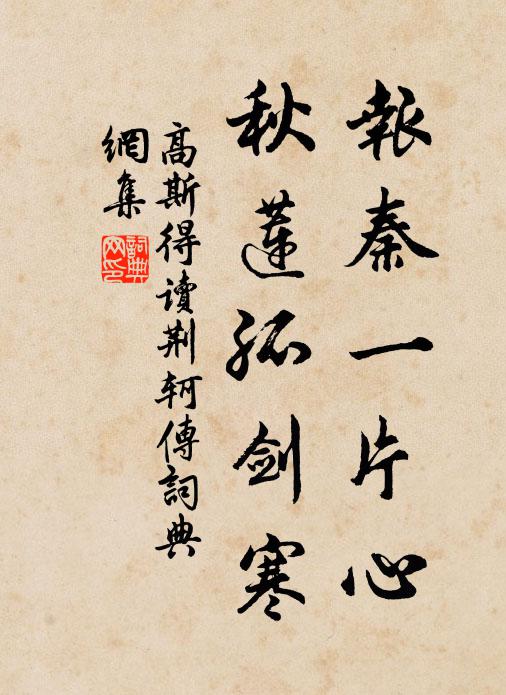 報秦一片心
秋蓮孤劍寒
高斯得讀荆軻傳詞典
網集
詞典
网印